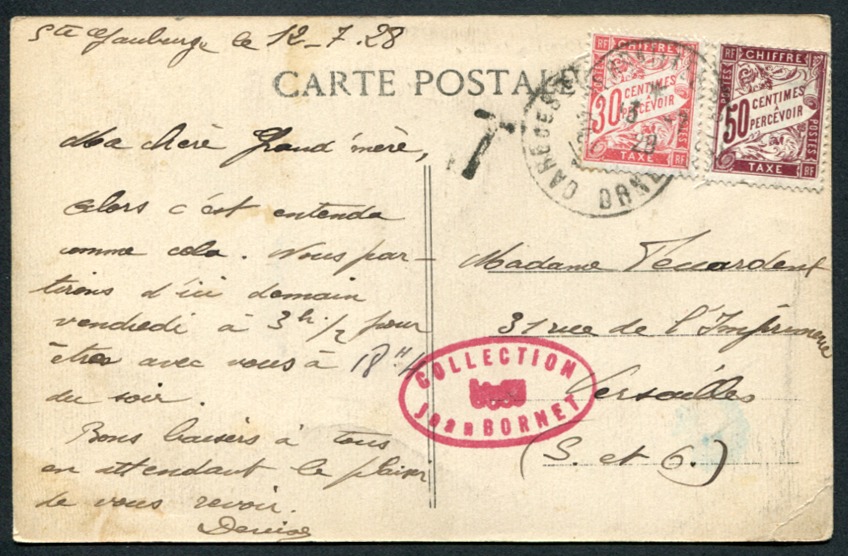 Ste Gauburge le 12-7.28
CARTE POSTALE
T
RF CHIFFRE RF
30 CENTIMES À PERCEVOIR
POSTES
RF TAXE RF
RF CHIFFRE RF
50 CENTIMES À PERCEVOIR
POSTES
TAXE RF
28
ORNE
Ma chère Grand'mère,
Alors c'est entendu
comme cela. Nous par-
tirons d'ici demain
vendredi à 3h 1/2 pour
être avec vous à 18H
du soir.
Bons baisers à tous
en attendant le plaisir
de vous revoir.
Denise
Madame
31 rue de l'Imprimerie
Versailles
(S. et O.)
COLLECTION
Jean BORNET